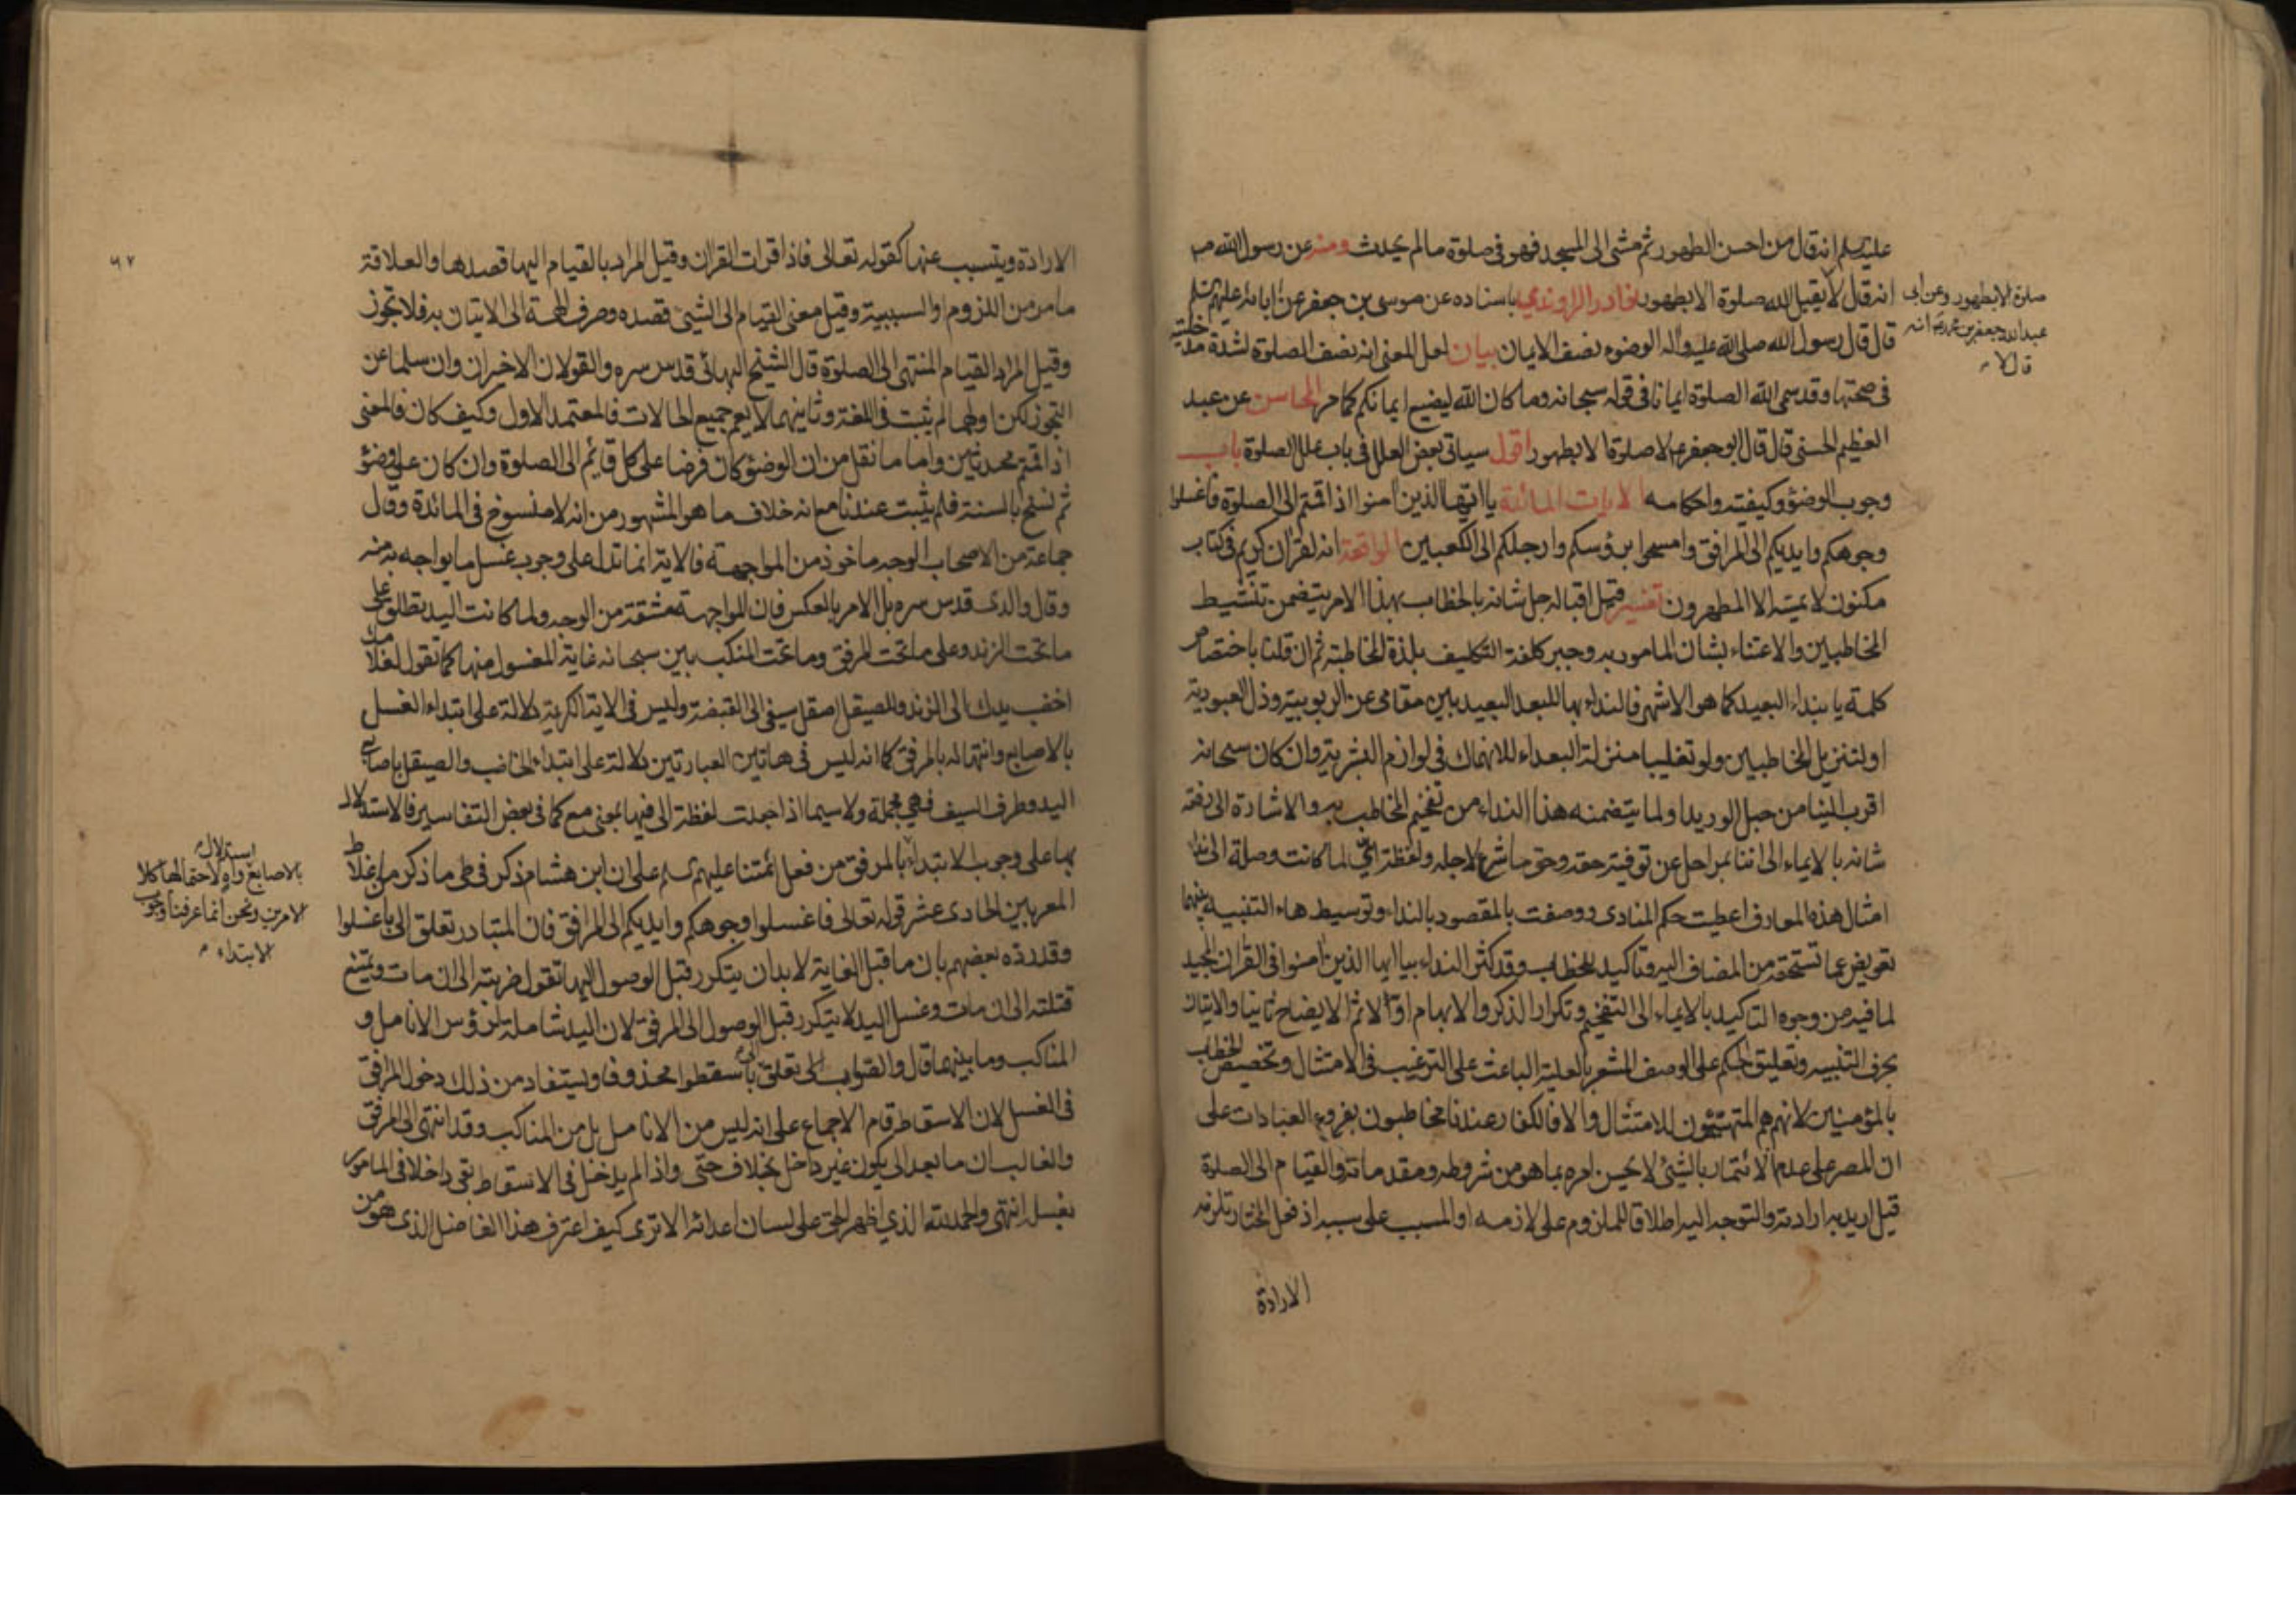 عليه السلم انه قال من احسن الطهور ثم مشى الى المسجد فهو فى صلوة ما لم يحدث ومنه عن رسول الله ص
انه قال لا يقبل الله صلوة الا بطهور نوادر الراوندي باسناده عن موسى بن جعفر عن ابائه عليهم السلم
قال قال رسول الله صلى الله عليه واله الوضوء نصف الايمان بيان لعل المعنى انه نصف الصلوة لشدة مدخليته
فى صحتها وقد سمى الله الصلوة ايمانا فى قوله سبحانه وما كان الله ليضيع ايمانكم كما مر المحاسن عن عبد
العظيم الحسنى قال قال ابو جعفر ع لا صلوة الا بطهور اقول سياتى بعض العلل فى باب علل الصلوة باب
وجوب الوضوء وكيفيته واحكامه الايات المائدة يا ايها الذين امنوا اذا قمتم الى الصلوة فاغسلوا
وجوهكم وايديكم الى المرافق وامسحوا برؤسكم وارجلكم الى الكعبين الواقعة انه لقران كريم فى كتاب
مكنون لا يمسه الا المطهرون تفسير قيل اقباله جل شانه بالخطاب بهذا الامر يتضمن تنشيط
المخاطبين والاعتناء بشان المامور به وجبر كلفة التكليف بلذة المخاطبة ثم ان قلنا باختصاص
كلمة يا بنداء البعيد كما هو الاشهر فالنداء بها للبعد البعيد بين مقامى عز الربوبية وذل العبودية
او لتنزيل المخاطبين ولو تغليبا منزلة البعداء للانهماك فى لوازم البشرية وان كان سبحانه
اقرب الينا من حبل الوريد او لما يتضمنه هذا النداء من تفخيم المخاطب به والاشارة الى رفعة
شانه بالايماء الى اننا بمراحل عن توفية حقه وحق ما شرع لاجله ولفظة اى لما كانت وصلة الى نداء
امثال هذه المعارف اعطيت حكم المنادى ووصفت بالمقصود بالنداء وتوسيط هاء التنبيه بينهما
تعويض عما تستحقه من المضاف اليه وتاكيد للخطاب وقد كثر النداء بيا ايها الذين امنوا فى القران المجيد
لما فيه من وجوه التاكيد بالايماء الى التفخيم وتكرار الذكر والابهام اولا ثم الايضاح ثانيا والاتيان
بحرف التنبيه وتعليق الحكم على الوصف المشعر بالعلية الباعث على الترغيب فى الامتثال وتخصيص الخطاب
بالمؤمنين لانهم هم المتهيئون للامتثال والا فالكفار عندنا مخاطبون بفروع العبادات على
ان المصر على عدم الائتمار بالشئ لا يحسن امره بما هو من شروطه ومقدماته والقيام الى الصلوة
قيل اريد به ارادته والتوجه اليه اطلاقا للملزوم على لازمه او المسبب على سببه اذ فعل المختار تلزمه
الارادة
صلوة الا بطهور وعن ابى
عبد الله جعفر بن محمد ع انه
قال لا
الارادة ويتسبب عنها كقوله تعالى فاذا قرات القران وقيل المراد بالقيام اليها قصدها والعلاقة
ما مر من اللزوم او السببية وقيل معنى القيام الى الشئ قصده وصرف الهمة الى الاتيان به فلا تجوز
وقيل المراد القيام المنتهى الى الصلوة قال الشيخ البهائى قدس سره والقولان الاخيران وان سلما عن
التجوز لكن اولهما لم يثبت فى اللغة وثانيهما لا يعم جميع الحالات فالمعتمد الاول وكيف كان فالمعنى
اذا قمتم محدثين واما ما نقل من ان الوضوء كان فرضا على كل قائم الى الصلوة وان كان على وضوء
ثم نسخ بالسنة فلم يثبت عندنا مع انه خلاف ما هو المشهور من انه لا منسوخ فى المائدة وقال
جماعة من الاصحاب الوجه ماخوذ من المواجهة فالاية انما تدل على وجوب غسل ما يواجه به منه
وقال والدى قدس سره بل الامر بالعكس فان المواجهة مشتقة من الوجه ولما كانت اليد تطلق على
ما تحت الزند وعلى ما تحت المرفق وما تحت المنكب بين سبحانه غاية المغسول منها كما تقول لغلامك
اخضب يدك الى الزند وللصيقل اصقل سيفى الى القبضة وليس فى الاية الكريمة دلالة على ابتداء الغسل
بالاصابع وانتهائه بالمرفق كما انه ليس فى هاتين العبارتين دلالة على ابتداء الخاضب والصيقل باصابع
اليد وطرف السيف فهى مجملة ولا سيما اذا جعلت لفظة الى فيها بمعنى مع كما فى بعض التفاسير فالاستدلال
بها على وجوب الابتداء بالمرفق من فعل ائمتنا عليهم السلم على ان ابن هشام ذكر فى طى ما ذكر من اغلاط
المعربين الحادى عشر قوله تعالى فاغسلوا وجوهكم وايديكم الى المرافق فان المتبادر تعلق الى باغسلوا
وقد رده بعضهم بان ما قبل الغاية لا بد ان يتكرر قبل الوصول اليها تقول ضربته الى ان مات ويمتنع
قتلته الى ان مات وغسل اليد لا يتكرر قبل الوصول الى المرفق لان اليد شاملة لرؤس الانامل و
المناكب وما بينهما قال والصواب تعلق الى باسقطوا محذوفا ويستفاد من ذلك دخول المرافق
فى الغسل لان الاسقاط قام الاجماع على انه ليس من الانامل بل من المناكب وقد انتهى الى المرفق
والغالب ان ما بعد الى يكون غير داخل بخلاف حتى واذا لم يدخل فى الاسقاط بقى داخلا فى المامور
بغسله انتهى والحمد لله الذى اظهر الحق على لسان اعدائه الا ترى كيف اعترف هذا الفاضل الذى هو من
استدلال
بالاصابع واه لاحتمالها كلا
الامرين ونحن انما عرفنا وجوب
الابتداء
٩٧